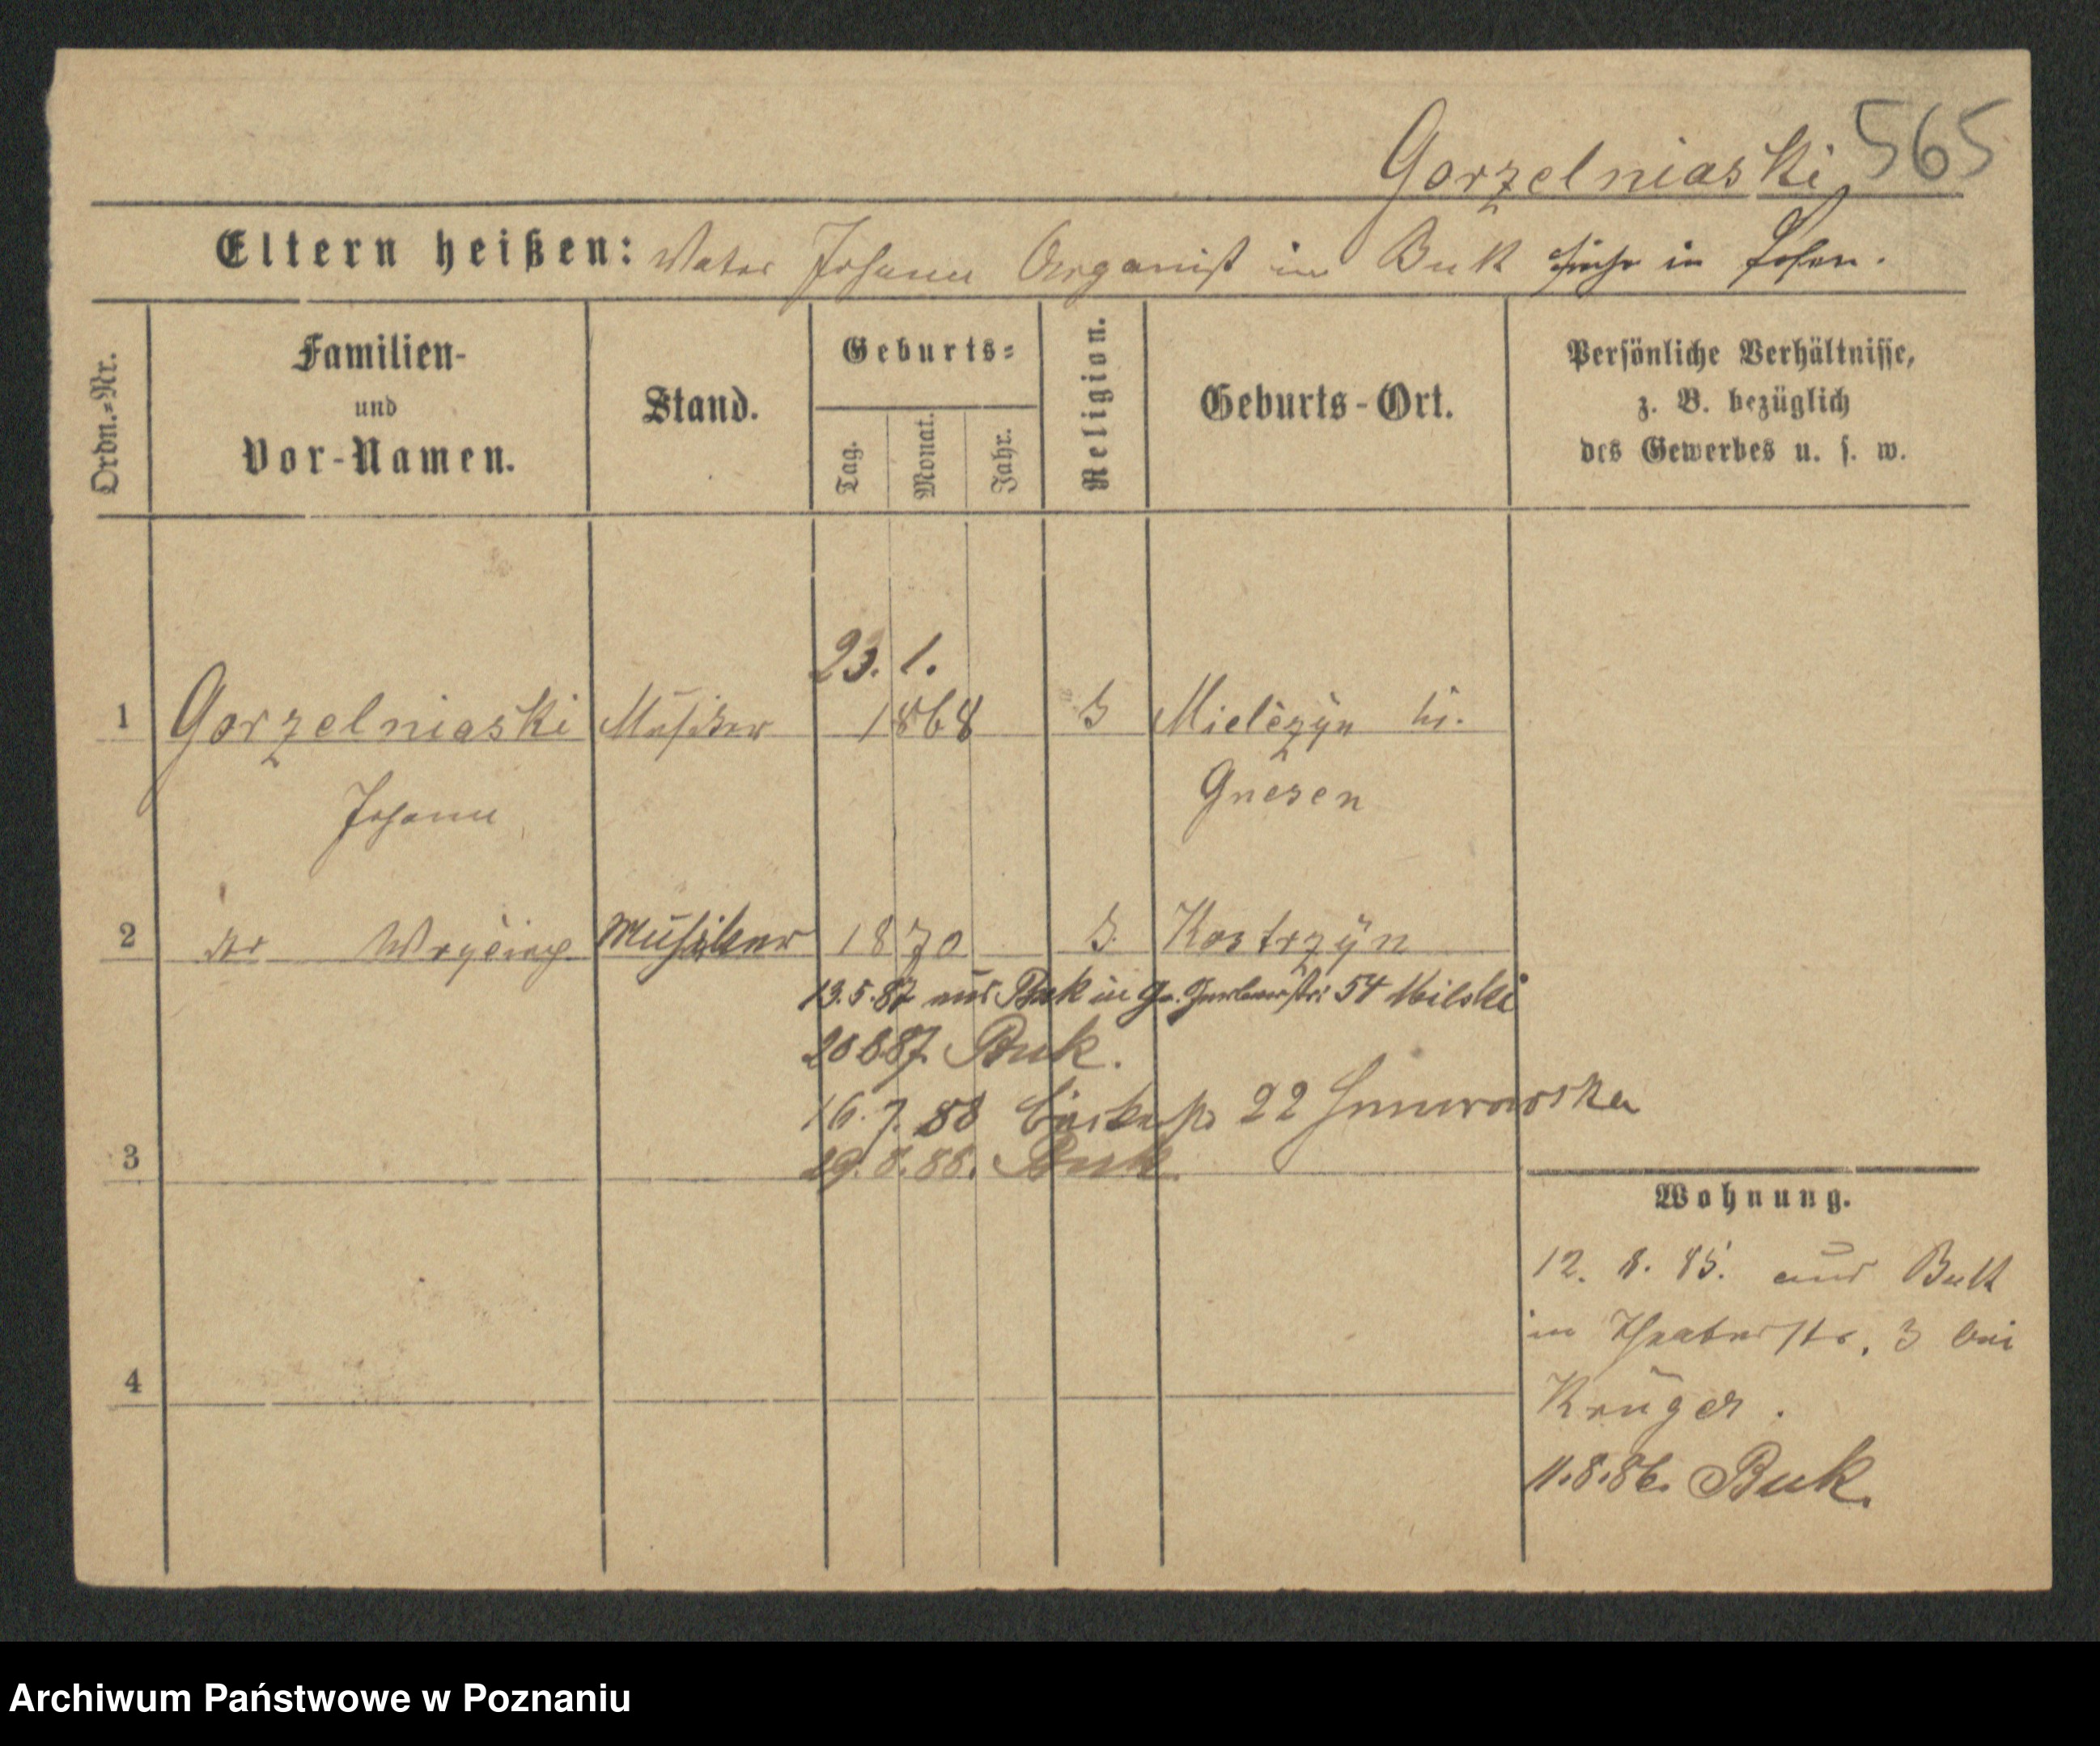 Gorzelniaski 565
Eltern heißen: Vater Johann Organist in Buk früher in Posen.
Ordn.=Nr.
Familien-
und
Vor-Namen.
Stand.
Geburts=
Tag.
Monat.
Jahr.
Religion.
Geburts-Ort.
Persönliche Verhältnisse,
z. B. bezüglich
des Gewerbes u. s. w.
23. 1.
1 Gorzelniaski Musiker 1868 Mielczyn
Gnesen
Johann
2 Musiker 1870 Kostrzyn
13.5.87 aus Buk in 54 Milski
20 8 87 Buk.
16. 7. 88 22
3
29. 8. 88. Buk
Wohnung.
12. 8. 85. aus Buk
in Theaterstr. 3 bei
4
Krüger.
11.8.86. Buk.
Archiwum Państwowe w Poznaniu